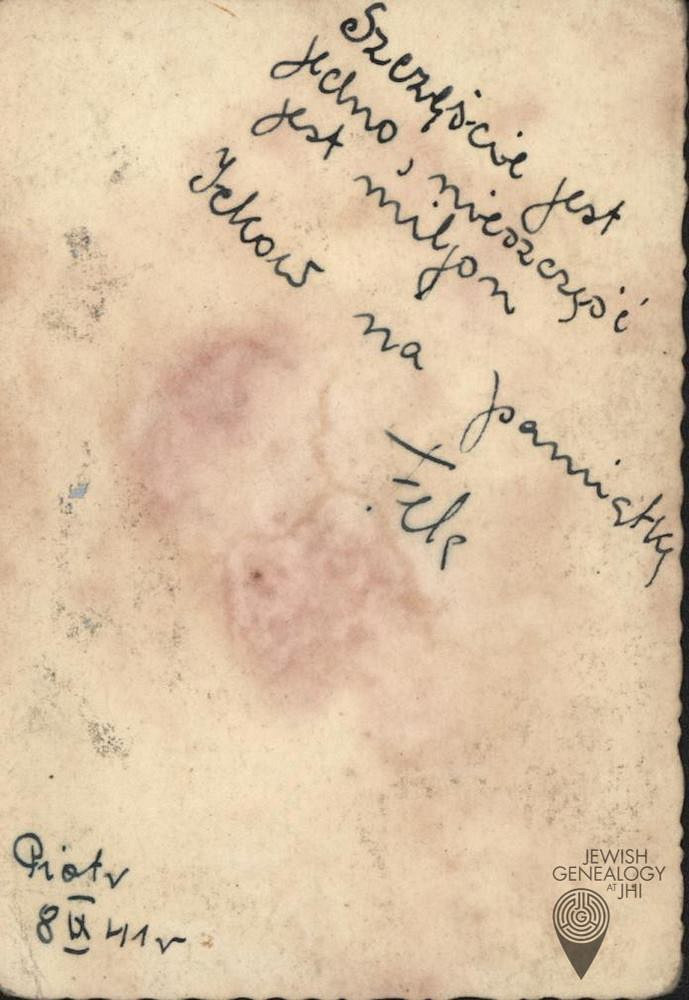 Szczęście jest
jedno, nieszczęść
jest miljon
Ickowi na pamiątkę
Fela
Piotr
8 IX 41 r
JEWISH
GENEALOGY
AT JHI